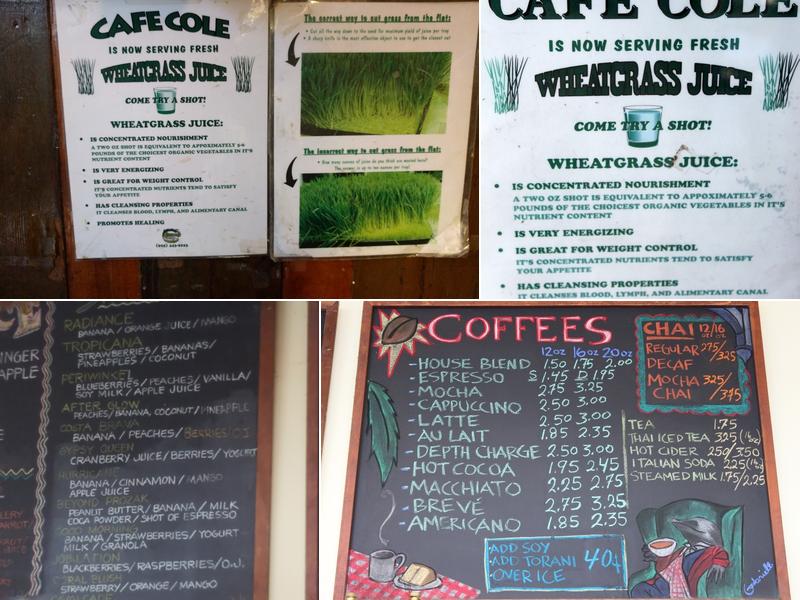 CAFE COLE
IS NOW SERVING FRESH
WHEATGRASS JUICE
COME TRY A SHOT!
WHEATGRASS JUICE:
• IS CONCENTRATED NOURISHMENT
A TWO OZ SHOT IS EQUIVALENT TO APPOXIMATELY 5-6
POUNDS OF THE CHOICEST ORGANIC VEGETABLES IN IT'S
NUTRIENT CONTENT
• IS VERY ENERGIZING
• IS GREAT FOR WEIGHT CONTROL
IT'S CONCENTRATED NUTRIENTS TEND TO SATISFY
YOUR APPETITE
• HAS CLEANSING PROPERTIES
IT CLEANSES BLOOD, LYMPH, AND ALIMENTARY CANAL
• PROMOTES HEALING
The correct way to cut grass from the flat:
• Cut all the way down to the seed for maximum yield of juice per tray
• A sharp knife is the most effective object to use to get the closest cut
The incorrect way to cut grass from the flat:
• How many ounces of juice do you think are wasted here?
The answer is up to two ounces per tray!
CAFE COLE
IS NOW SERVING FRESH
WHEATGRASS JUICE
COME TRY A SHOT!
WHEATGRASS JUICE:
• IS CONCENTRATED NOURISHMENT
A TWO OZ SHOT IS EQUIVALENT TO APPOXIMATELY 5-6
POUNDS OF THE CHOICEST ORGANIC VEGETABLES IN IT'S
NUTRIENT CONTENT
• IS VERY ENERGIZING
• IS GREAT FOR WEIGHT CONTROL
IT'S CONCENTRATED NUTRIENTS TEND TO SATISFY
YOUR APPETITE
• HAS CLEANSING PROPERTIES
IT CLEANSES BLOOD, LYMPH, AND ALIMENTARY CANAL
INGER
APPLE
RADIANCE
BANANA / ORANGE JUICE / MANGO
TROPICANA
STRAWBERRIES / BANANAS /
PINEAPPLES / COCONUT
PERIWINKEL
BLUEBERRIES / PEACHES / VANILLA /
SOY MILK / APPLE JUICE
AFTER GLOW
PEACHES/BANANA, COCONUT / PINEAPPLE
COSTA BRAVA
BANANA / PEACHES / BERRIES/O.J.
GYPSY QUEEN
CRANBERRY JUICE/BERRIES/YOGURT
HURRICANE
BANANA / CINNAMON / MANGO
APPLE JUICE
BEYOND PROZAK
PEANUT BUTTER / BANANA / MILK
COCA POWDER / SHOT OF ESPRESSO
GOOD MORNING
BANANA / STRAWBERRIES / YOGURT
MILK / GRANOLA
JUBILATION
BLACKBERRIES/RASPBERRIES/O.J.
CORAL BLUSH
STRAWBERRY / ORANGE / MANGO
COFFEES
12oz 16oz 20oz
-HOUSE BLEND 1.50 1.75 2.00
-ESPRESSO S 1.45 D 1.95
-MOCHA 2.75 3.25
-CAPPUCCINO 2.50 3.00
-LATTE 2.50 3.00
-AU LAIT 1.85 2.35
-DEPTH CHARGE 2.50 3.00
-HOT COCOA 1.95 2.45
-MACCHIATO 2.25 2.75
-BREVÉ 2.75 3.25
-AMERICANO 1.85 2.35
·ADD SOY
·ADD TORANI 40¢
·OVER ICE
CHAI 12/16
REGULAR 275/325
DECAF
MOCHA 325/
CHAI /375
TEA 1.75
THAI ICED TEA 325
HOT CIDER 250/350
ITALIAN SODA 225
STEAMED MILK 1.75/2.25